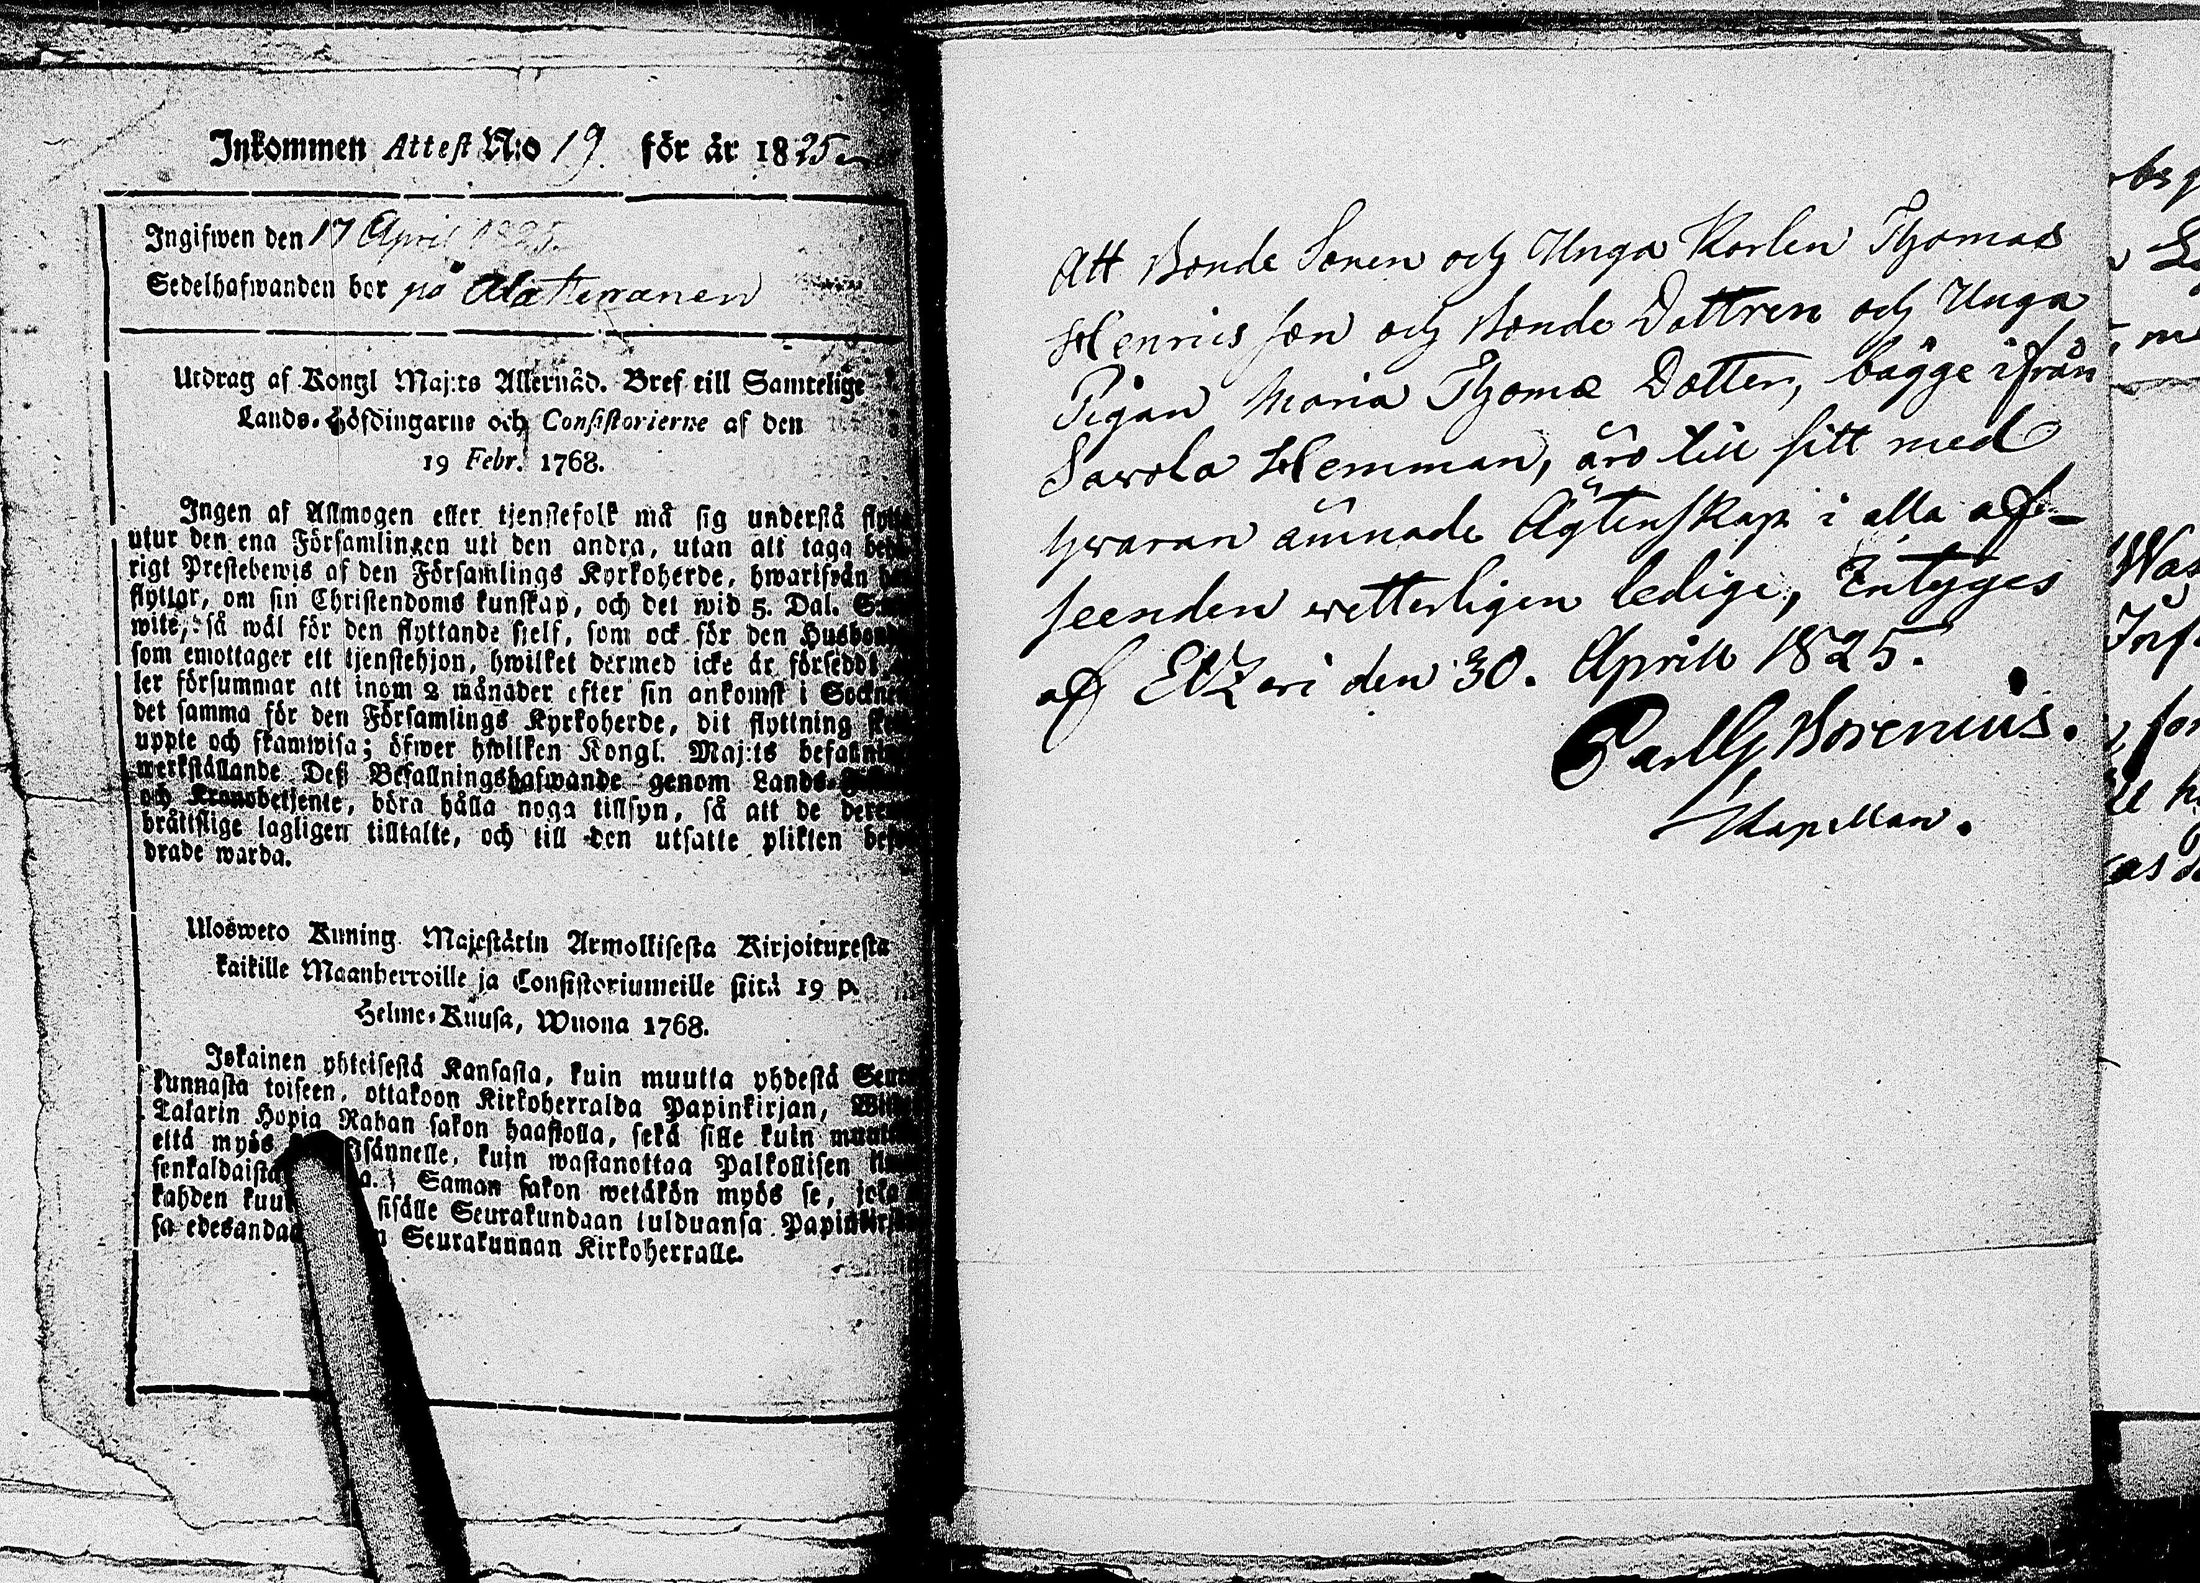 Inkommen Attest N:o 19. för år 1825
Ingifwen den 17 April 1825
Sedelhafwanden bor på
Utdrag af Kongl Maj:ts Allernåd. Bref till Samtelige
Lands-Höfdingarne och Consistorierne af den
19 Febr. 1768.
Ingen af Allmogen eller tjenstefolk må sig understå
utur den ena Församlingen uti den andra, utan att taga
rigt Prestebewis af den Församlings Kyrkoherde, hwarifrån
flyttar, om sin Christendoms kunskap, och det wid 5. Dal.
wite, så wäl för den flyttande sjelf, som ock för den
som emottager ett tjenstehjon, hwilket dermed icke är försedd
ler försummar att inom 2 månader efter sin ankomst i
det samma för den Församlings Kyrkoherde, dit flyttning
uppte och framwisa; öfwer hwilken Kongl. Maj:ts
werkställande Deß Befallningshafwande genom Lands-
och Kronobetjente, böra hålla noga tillsyn, så att de
bråttslige lagligen tilltalte, och till den utsatte plikten
drade warda.
Ulosweto Kuning. Majestätin Armollisesta Kirjoituxesta
kaikille Maanherroille ja Consistoriumeille siitä 19 p.
Helme-Kuusa, Wuona 1768.
Jokainen yhteisestä Kansasta, kuin muutta yhdestä
kunnasta toiseen, ottakoon Kirkoherralda Papinkirjan,
Talarin Hopia Rahan sakon haastolla, sekä sille kuin
että myös Isännelle, kuin wastanottaa Palkollisen
senkaldaista Saman sakon wetäkön myös se,
kahden sisälle Seurakundaan tulduansa
sa Seurakunnan Kirkoherralle.
Att Bonde Sonen och Unga Karlen Thomas
Henrics son och Bonde Dottren och Unga
Pigan Maria Thomæ Dotter, bägge ifrån
Sawola Hemman, äro till sitt med
hwaran ämnade Ägtenskap i alla af-
seenden wetterligen ledige, Intyges
af Etzeri den 30. Aprill 1825.
Borenius.
Kapellan.